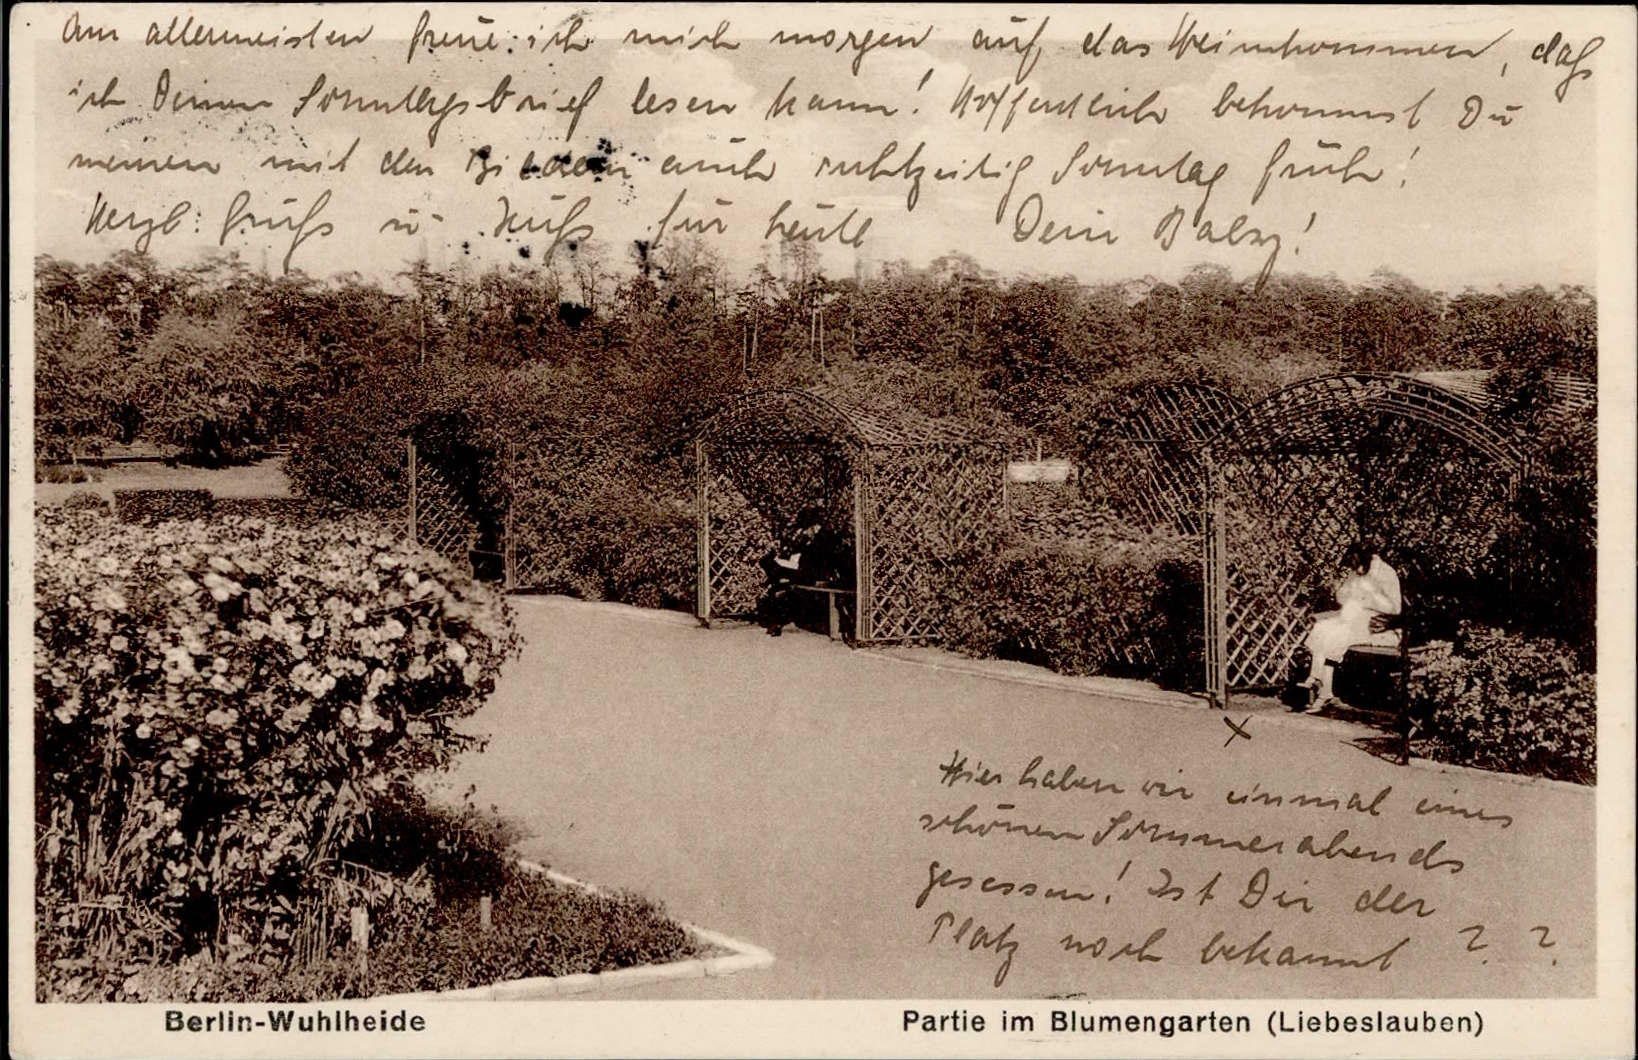 Am allermeisten freue ich mich morgen auf das Heimkommen, daß
ich Deinen Sonntagsbrief lesen kann! Hoffentlich bekommst Du
meinen mit den Bildern auch rechtzeitig Sonntag früh!
Herzl. Gruß u. Kuß für heute Dein
Hier haben wir einmal eines
schönen Sommerabends
gesessen! Ist Dir der
Platz noch bekannt ? ?
Berlin-Wuhlheide
Partie im Blumengarten (Liebeslauben)